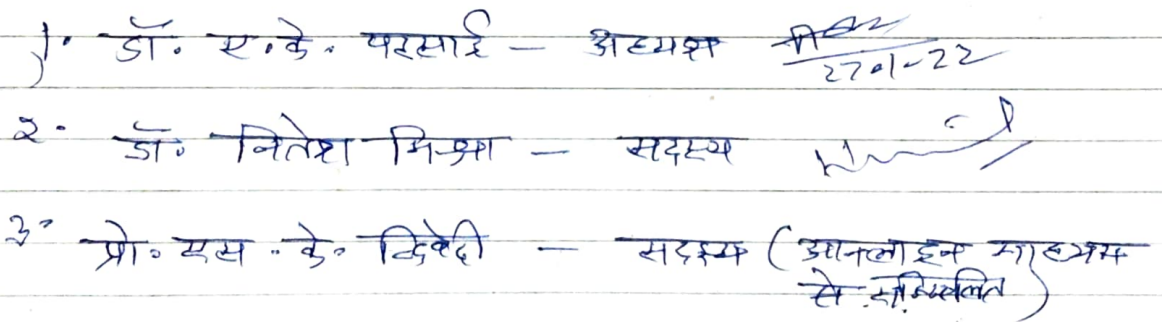 १. डॉ. ए. के. परसाई – अध्यक्ष
27-1-22
२. डॉ. नितेश मिश्रा – सदस्य
३. प्रो. एस. के. द्विवेदी – सदस्य (आनलाइन माध्यम
से सम्मिलित)